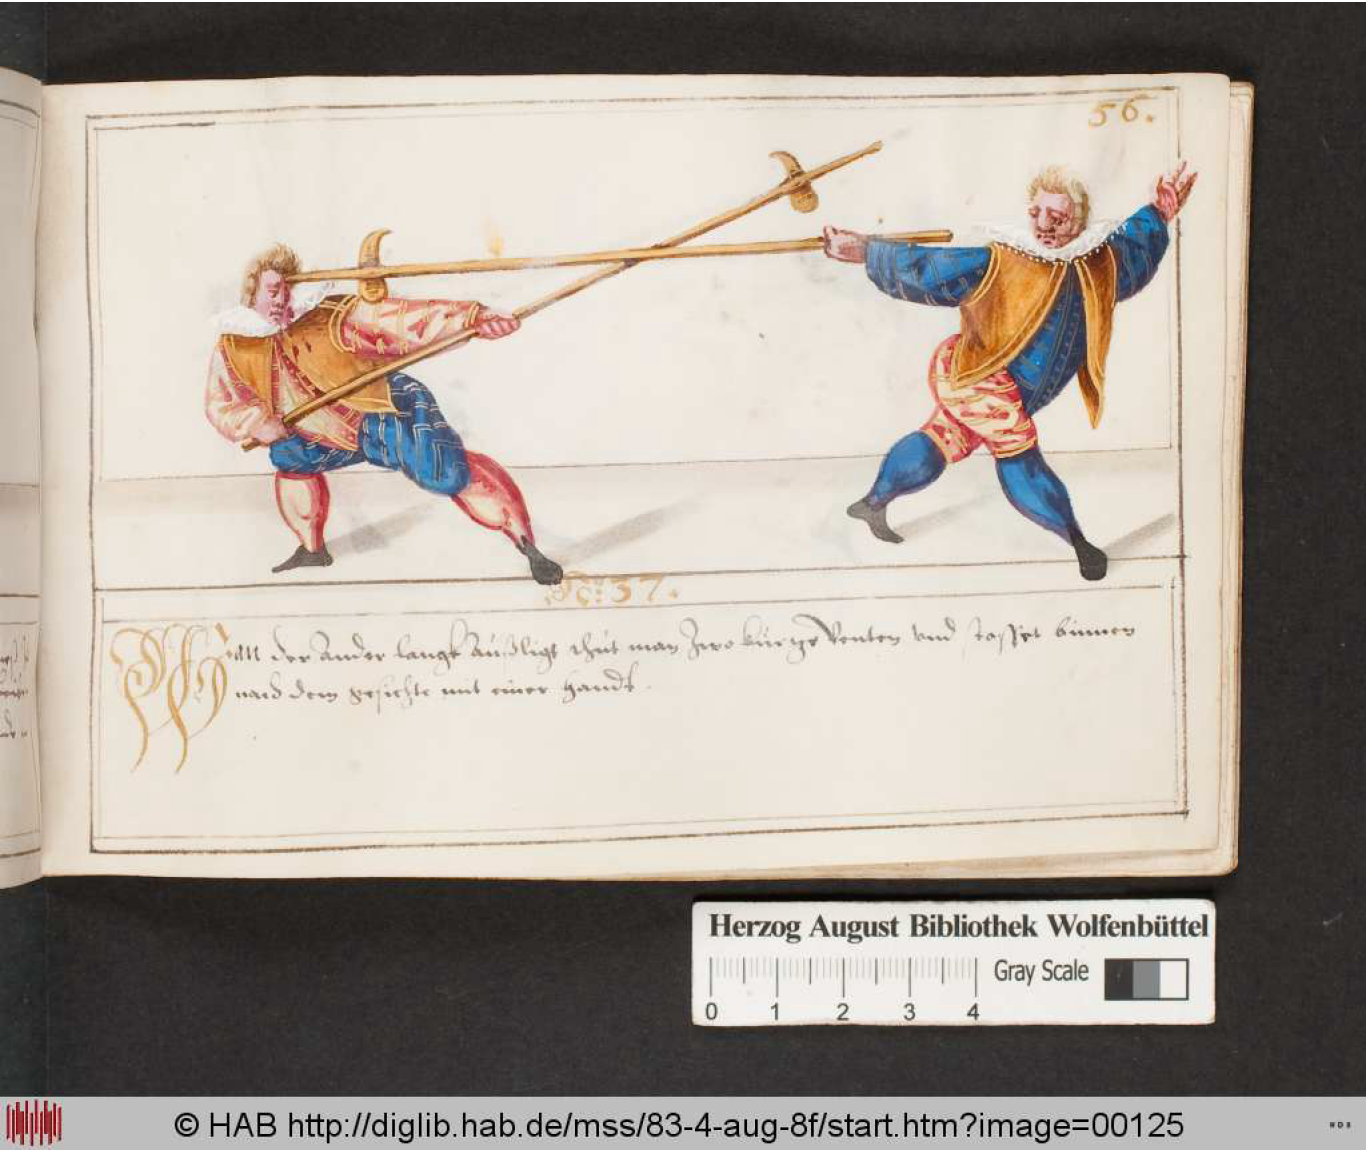 56.
No: 37.
Wan der Ander lange Außligt thut man Zwo kürtze Venten vnd stosset binnen
nach dem gesichte mit einer handt.
Herzog August Bibliothek Wolfenbüttel
Gray Scale
0 1 2 3 4
© HAB http://diglib.hab.de/mss/83-4-aug-8f/start.htm?image=00125